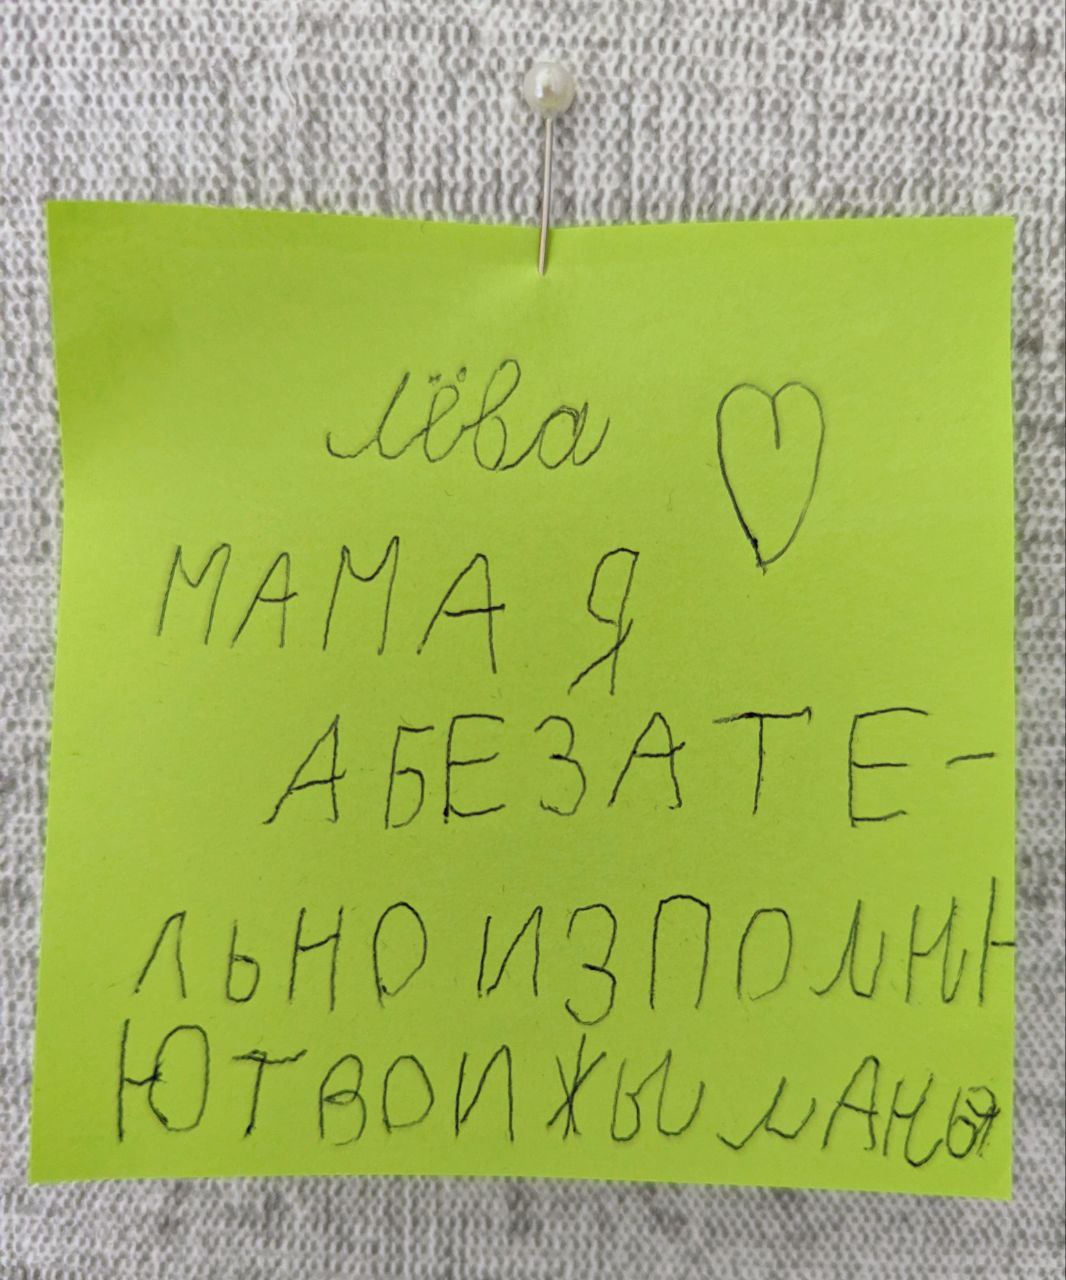 лёва
МАМА Я
АБЕЗАТЕ-
ЛЬНО ИЗПОЛНН
Ю ТВОИ ЖЫ